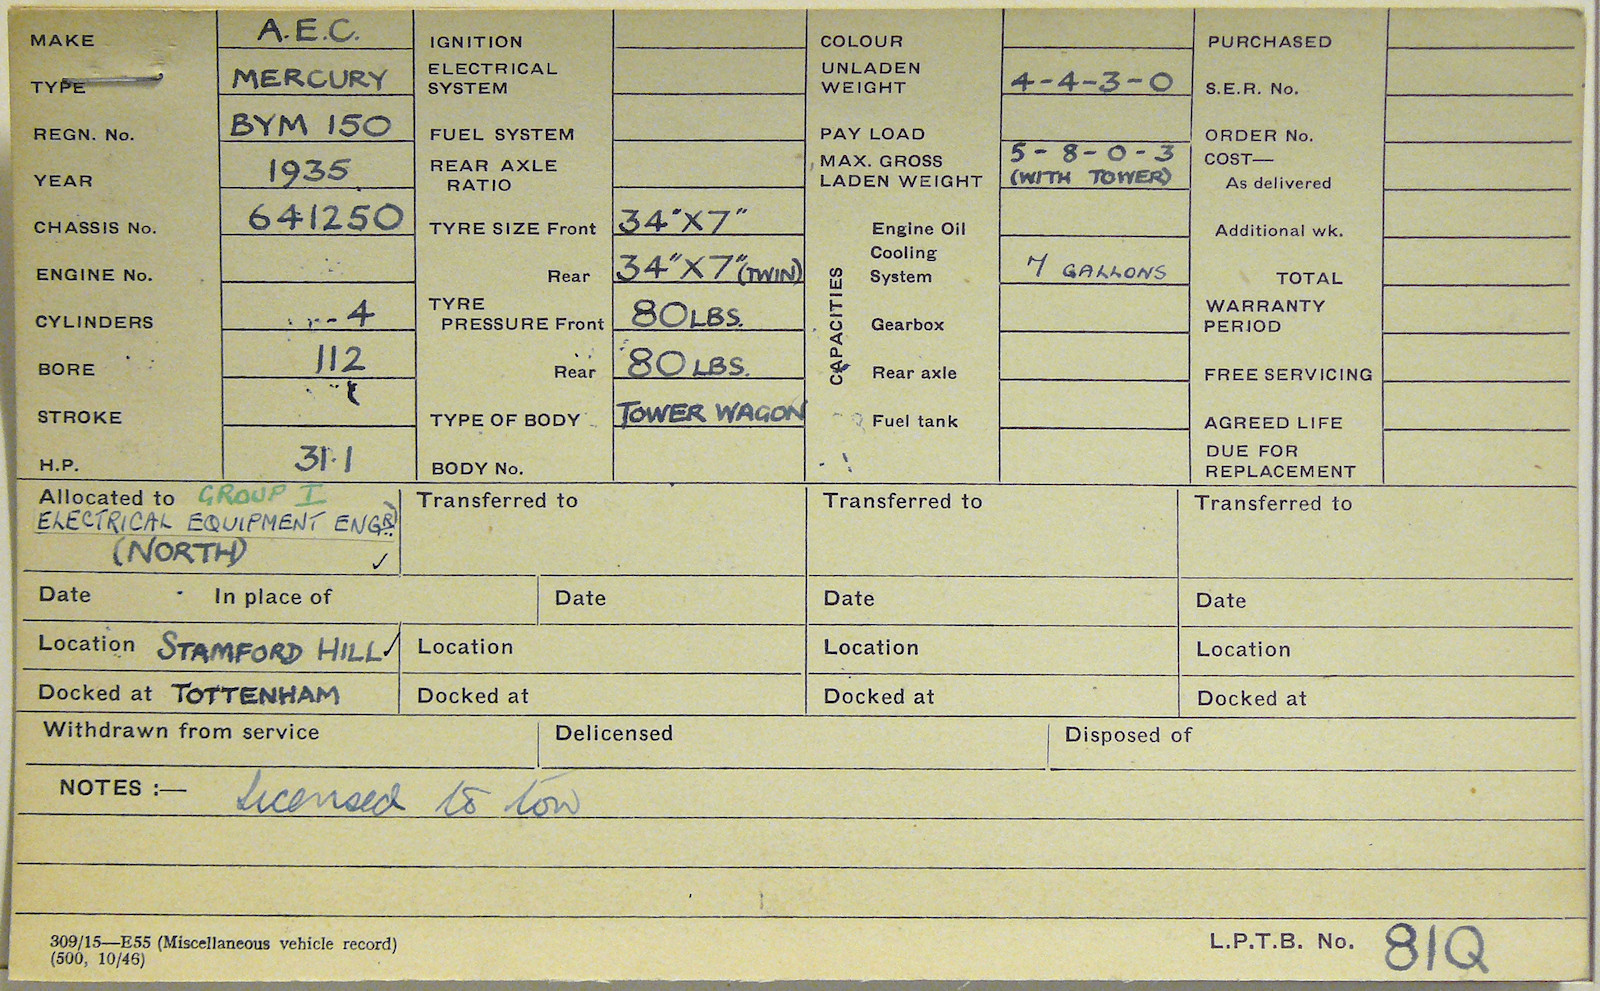 MAKE A.E.C.
TYPE MERCURY
REGN. No. BYM 150
YEAR 1935
CHASSIS No. 641250
ENGINE No.
CYLINDERS 4
BORE 112
STROKE
H.P. 31·1
IGNITION
ELECTRICAL
SYSTEM
FUEL SYSTEM
REAR AXLE
RATIO
TYRE SIZE Front 34"X7"
Rear 34"X7" (TWIN)
TYRE
PRESSURE Front 80 LBS.
Rear 80 LBS.
TYPE OF BODY TOWER WAGON
BODY No.
COLOUR
UNLADEN
WEIGHT 4-4-3-0
PAY LOAD
MAX. GROSS 5-8-0-3
LADEN WEIGHT (WITH TOWER)
CAPACITIES
Engine Oil
Cooling
System 7 GALLONS
Gearbox
Rear axle
Fuel tank
PURCHASED
S.E.R. No.
ORDER No.
COST—
As delivered
Additional wk.
TOTAL
WARRANTY
PERIOD
FREE SERVICING
AGREED LIFE
DUE FOR
REPLACEMENT
Allocated to GROUP I
ELECTRICAL EQUIPMENT ENGR.
(NORTH) ✓
Transferred to
Transferred to
Transferred to
Date In place of
Date
Date
Date
Location STAMFORD HILL ✓
Location
Location
Location
Docked at TOTTENHAM
Docked at
Docked at
Docked at
Withdrawn from service
Delicensed
Disposed of
NOTES :— Licensed to tow
309/15—E55 (Miscellaneous vehicle record)
(500, 10/46)
L.P.T.B. No. 81Q